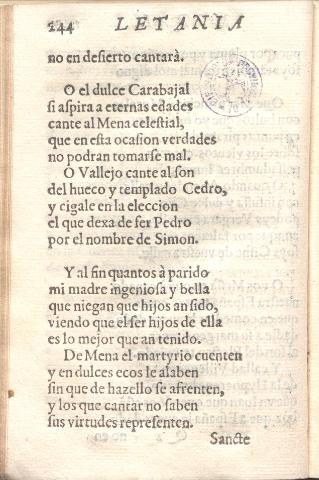 244 LETANIA
no en desierto cantarà.
O el dulce Carabajal
si aspira a eternas edades
cante al Mena celestial,
que en esta ocasion verdades
no podran tomarse mal.
O Vallejo cante al son
del hueco y templado Cedro,
y cigale en la eleccion
el que dexa de ser Pedro
por el nombre de Simon.
Y al fin quantos à parido
mi madre ingeniosa y bella
que niegan que hijos an sido,
viendo que el ser hijos de ella
es lo mejor que an tenido.
De Mena el martyrio cuenten
y en dulces ecos le alaben
sin que de hazello se afrenten,
y los que cantar no saben
sus virtudes representen.
Sancte